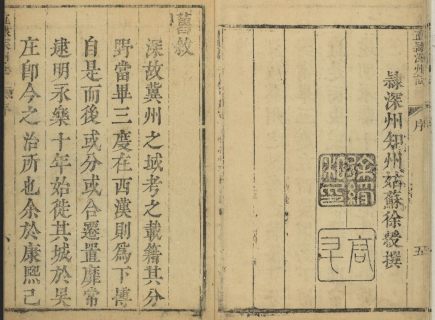 序
五
隸深州知州姑蘇徐綬撰
舊敘
深故冀州之域考之載籍其分
野當畢三度在西漢則爲下博
自是而後或分或合遷置靡常
逮明永樂十年始徙其城於吳
庄即今之治所也余於康熙己